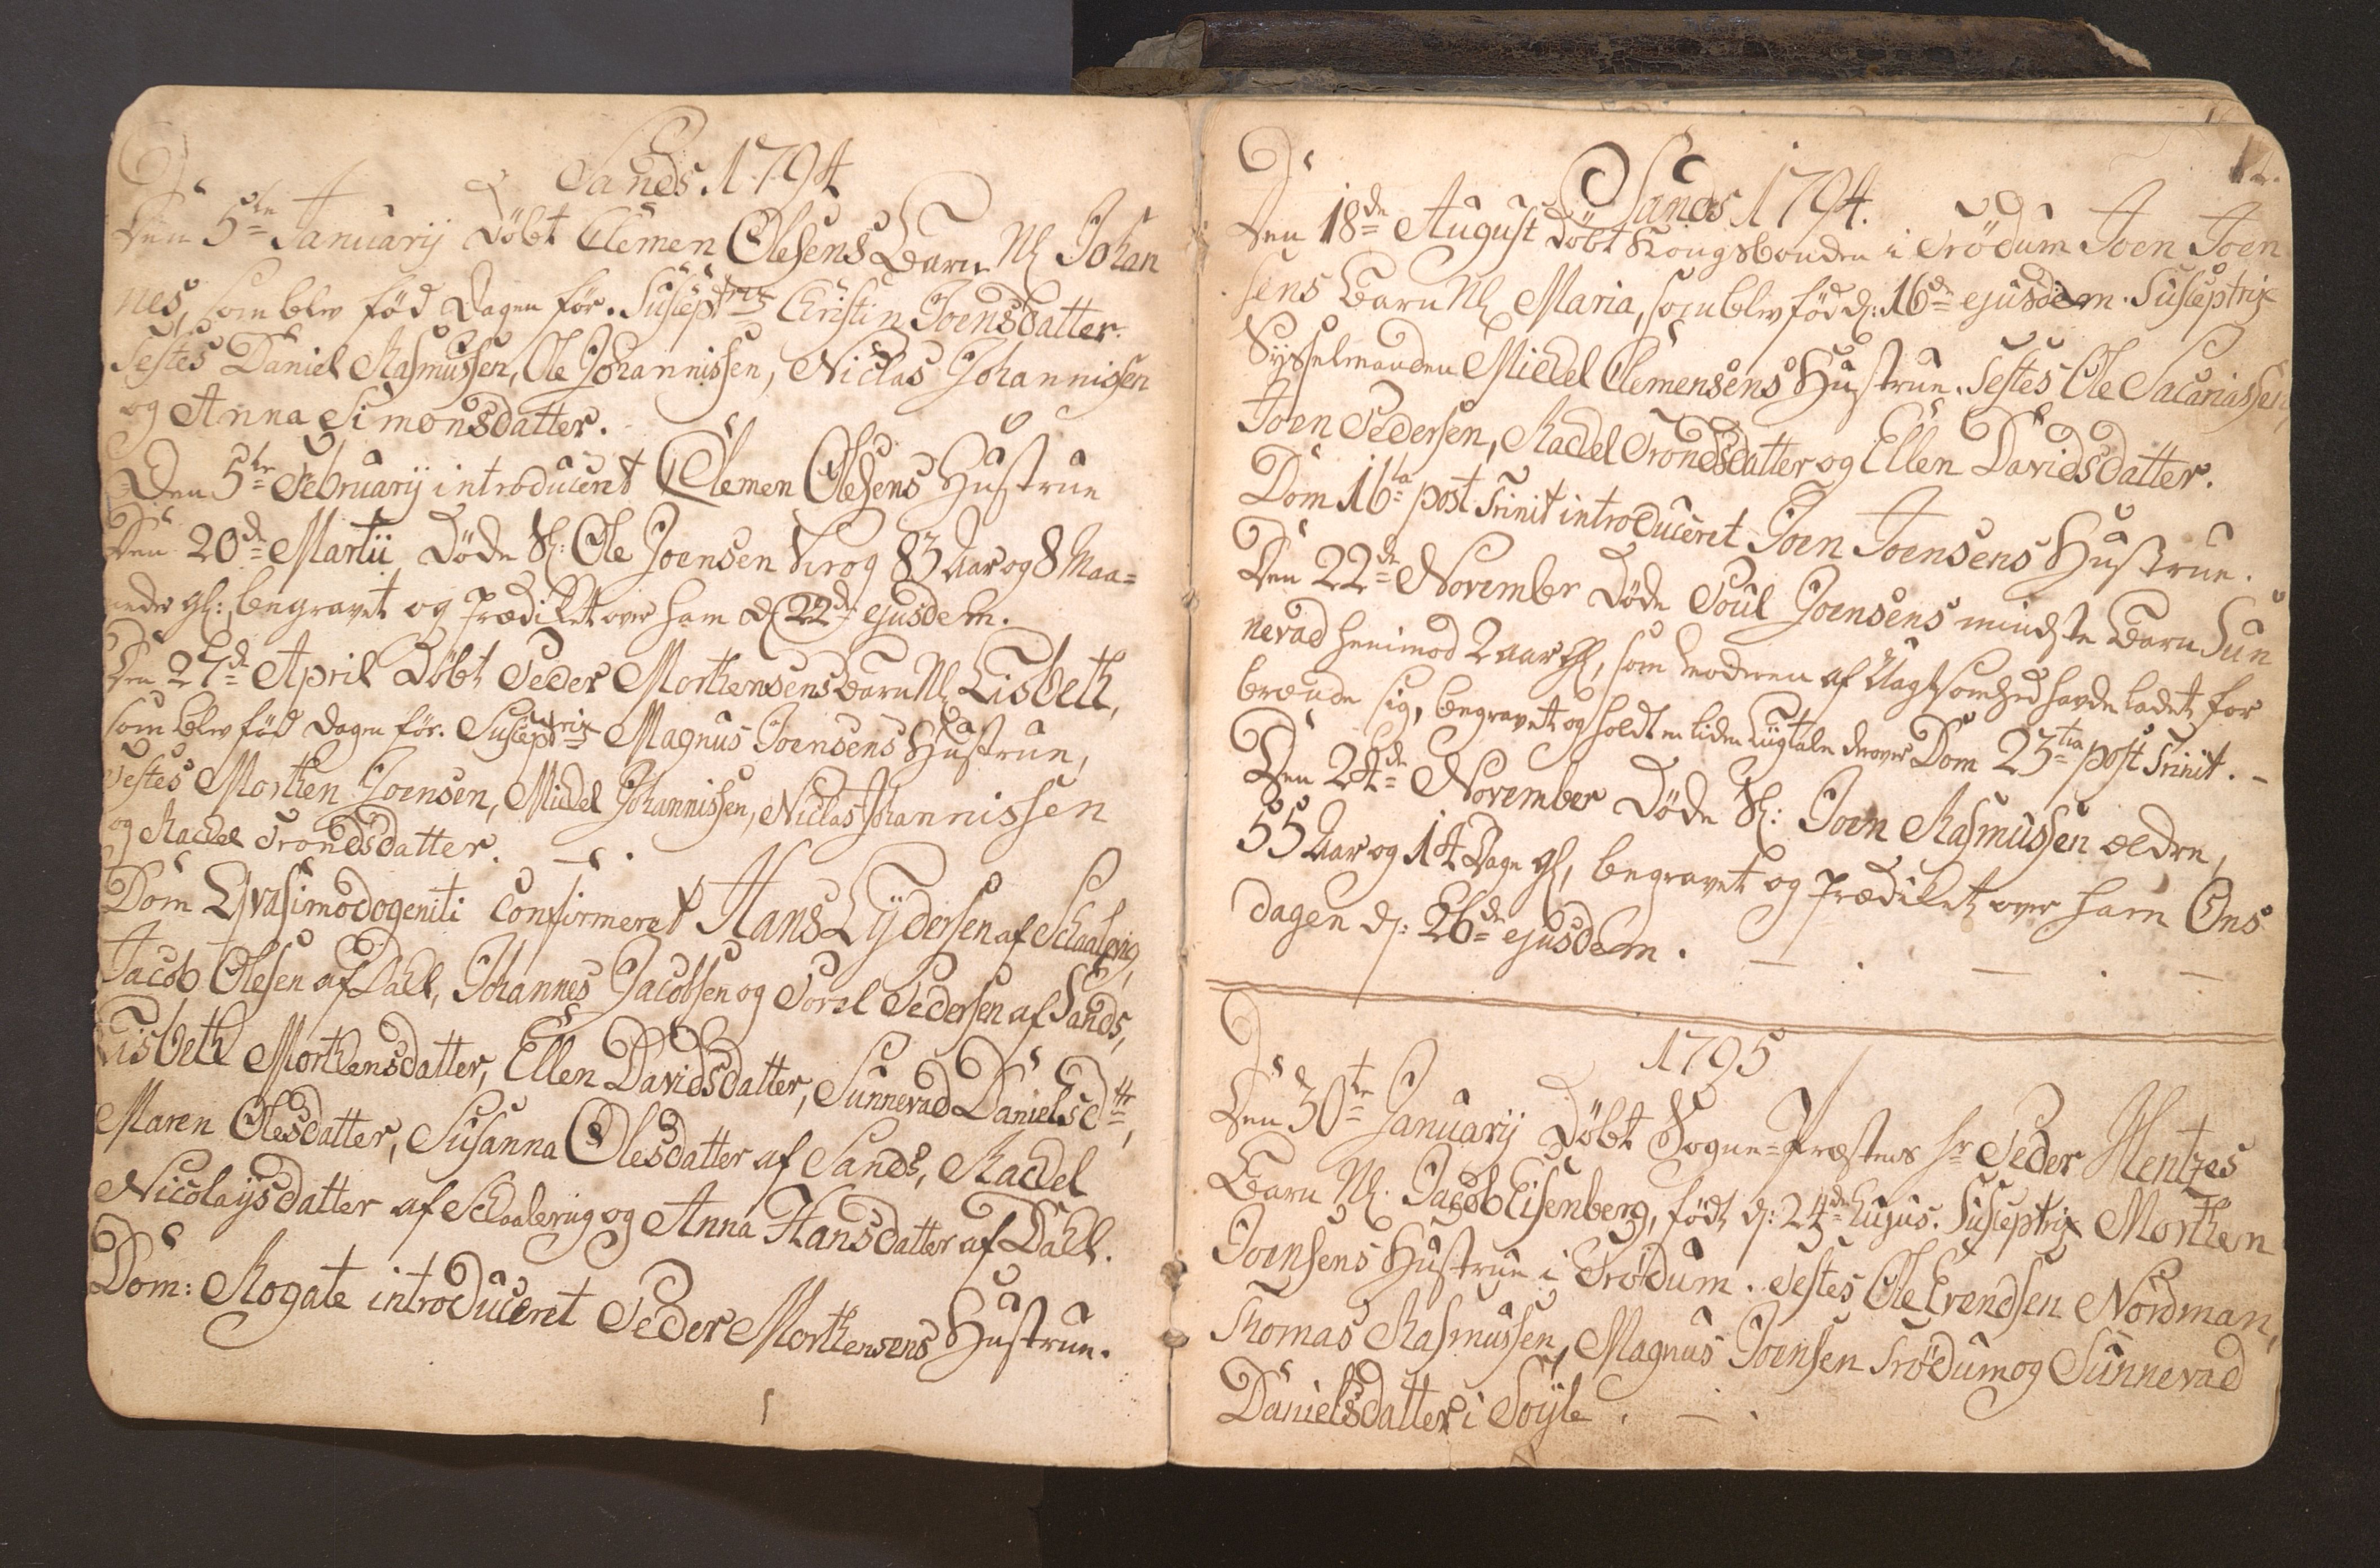 Sands. 1794
Den 5te Januarij Döbt Clemen Olesens Barn Nl Johan
nes, som blev fød Dagen för. Susceptrix Christin Joensdatter.
Testes Daniel Rasmussen, Ole Johannissen, Niclas Johannissen
og Anna Simonsdatter.
Den 5te Februarij introduceret Clemen Olesens Hustrue
Den 20de Martii Døde Sl: Ole Joensen Krog 83 Aar og 8 Maa=
neder gl:, begravet og Prædiket over ham d 22de ejusdem.
Den 27de April Döbt Peder Morthensens Barn Nl Lisbeth,
som blev fød Dagen för. Susceptrix Magnus Joensens Hustrue,
Testes Morthen Joensen, Michel Johannissen, Niclas Johannissen
og Rachel Trondsdatter.
Dom Qvasimodogeniti Confirmeret Hans Lÿdersen af Schaalevig,
Jacob Olesen af Dahl, Johannes Jacobsen og Porel Pedersen af Sands,
Lisbeth Morthensdatter, Ellen Davidsdatter, Sunnevad Daniels dtr,
Maren Olesdatter, Susanna Olesdatter af Sands, Rachel
Nicolaÿsdatter af Schaalevig og Anna Hansdatter af Dahl.
Dom: Rogate introduceret Peder Morthensens Hustrue.
12.
Sands 1794.
Den 18de August Döbt Kongsbonden i Trödum Joen Joen
sens Barn Nl Maria, som blev fød d: 16de ejusdem. Susceptrix
Sysselmanden Michel Clemensens Hustrue. Testes Ole Sacariassen,
Joen Pedersen, Rachel Trondsdatter og Ellen Davidsdatter.
Dom 16ta post Trinit introduceret Joen Joensens Hustrue.
Den 22de Novembr Døde Poul Joensens mindste Barn Sun
nevad henimod 2 aar gl, som Moderen af Uagtsomhed havde ladet for
brænde sig, begravet og holdt en liden Liigtale derover Dom 23tia post Trinit. -
Den 24de November Døde Sl: Joen Rasmussen ældre,
55 Aar og 14 Dage gl, begravet og Prædiket over ham Ons
dagen d: 26de ejusdem.
1795
Den 30te Januarij Döbt Sogne=Præstens Hr Peder Hentzes
Barn Nl. Jacob Eisenberg, födt d: 24de hujus. Susceptrix Morthen
Joensens Hustrue i Trödum. Testes Ole Evendsen Nordman,
Thomas Rasmussen, Magnus Joensen Trödum og Sunnevad
Danielsdatter i Söyle.